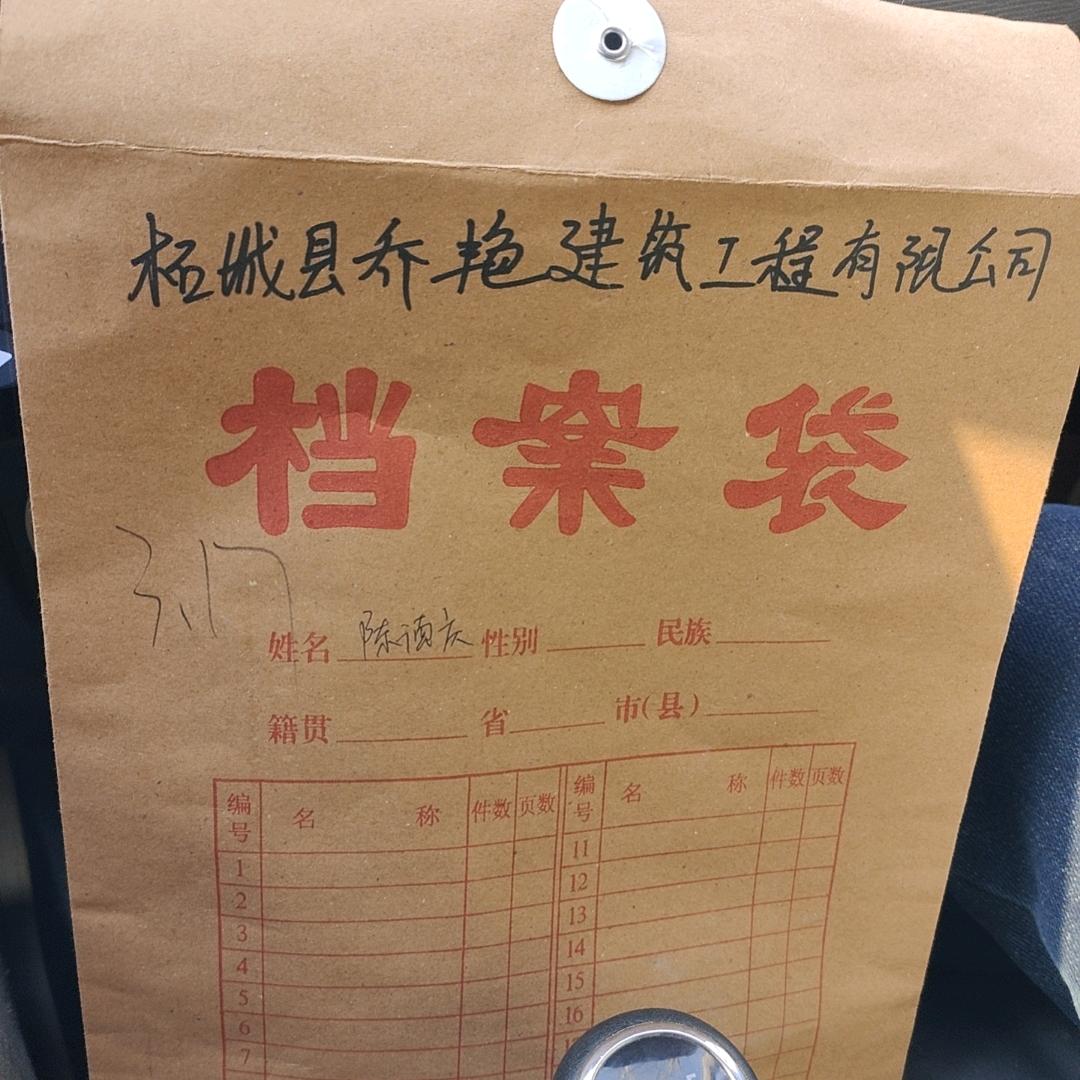 柘城县乔艳建筑工程有限公司
档案袋
3.17
姓名 陈德庆 性别 民族
籍贯 省 市(县)
编号 名称 件数 页数 编号 名称 件数 页数
1 11
2 12
3 13
4 14
5 15
6 16
7